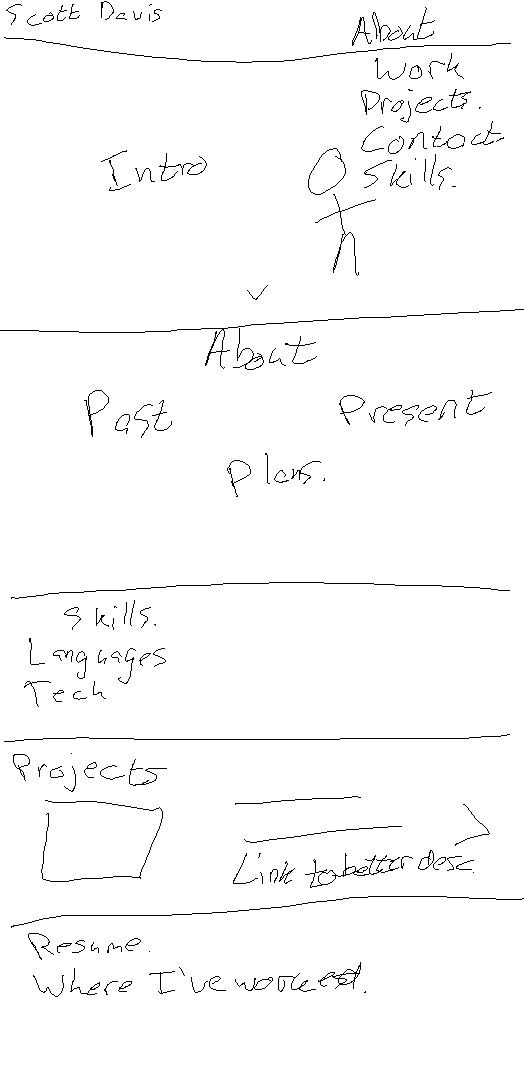 Scott Davis
About
Work
Projects.
Contact
Skills.
Intro
About
Past
Present
Plans.
Skills.
Languages
Tech
Projects
Link to better desc
Resume.
Where I've worked.